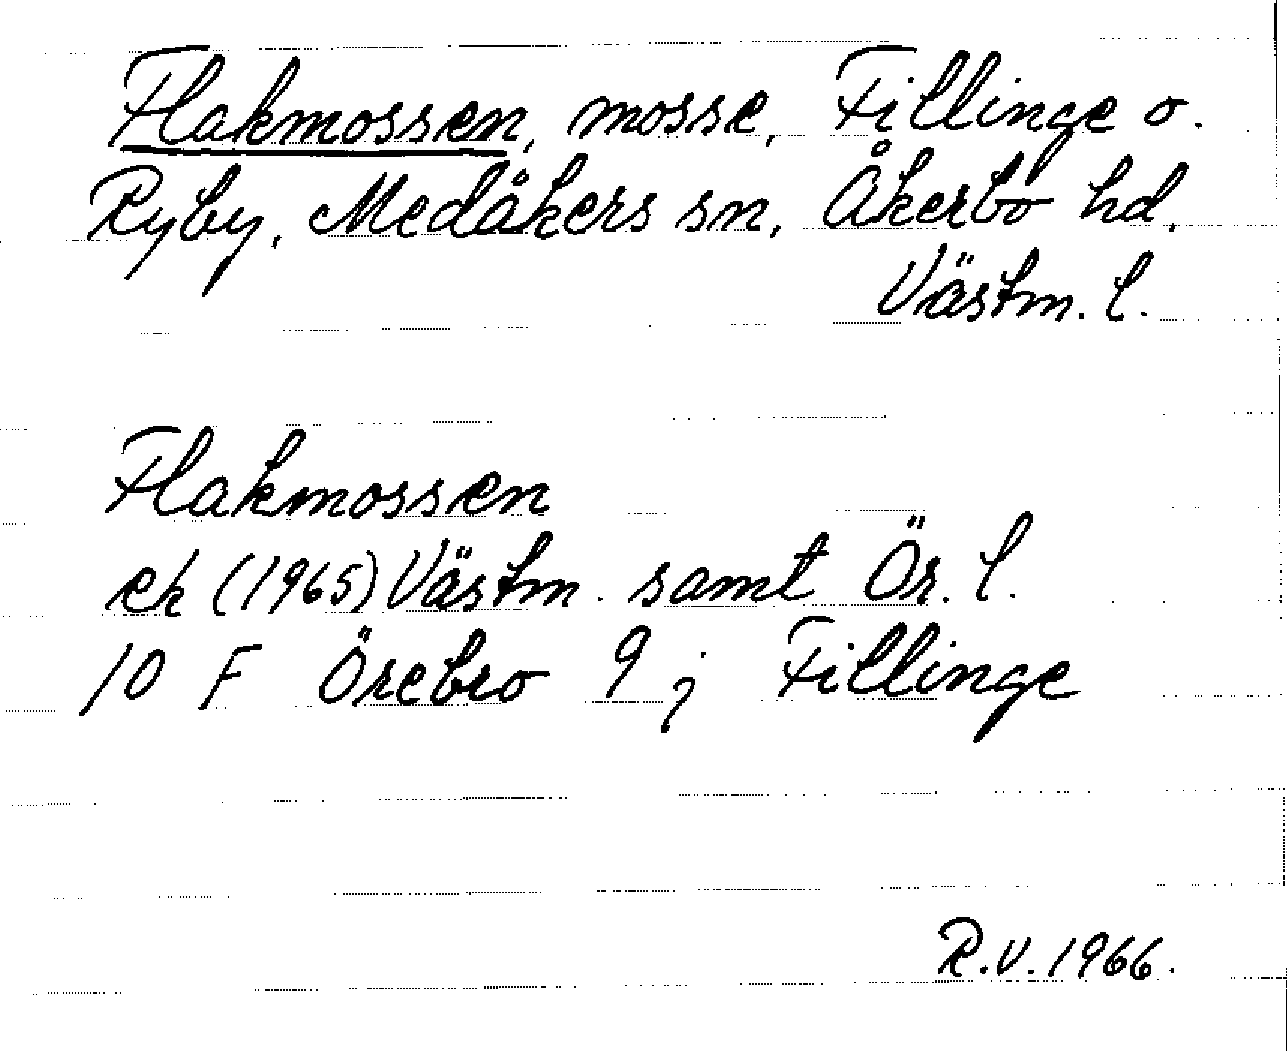 Flakmossen, mosse, Fillinge o.
Ryby, Medåkers sn, Åkerbo hd,
Västm. l.
Flakmossen
ek (1965) Västm. samt Ör. l.
10 F Örebro 9 j Fillinge
R.V. 1966.